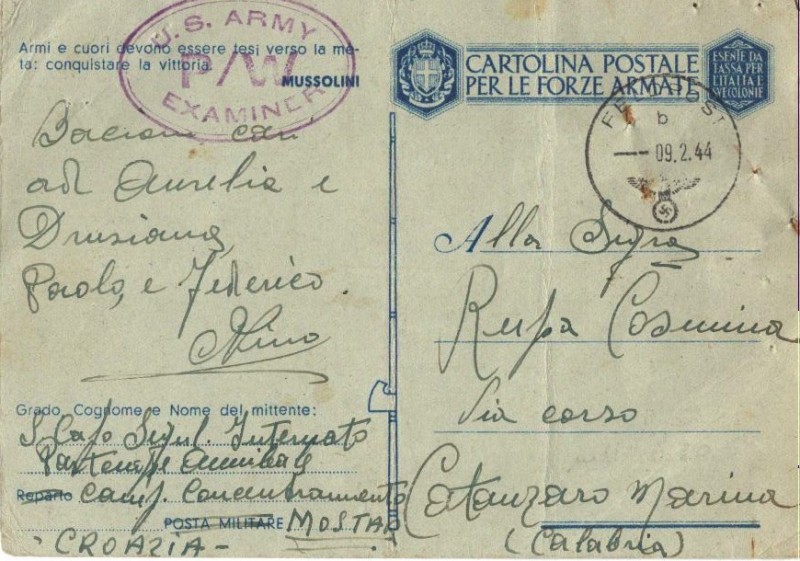 Armi e cuori devono essere tesi verso la me-
ta: conquistare la vittoria
MUSSOLINI
U.S. ARMY
P/W
EXAMINER
CARTOLINA POSTALE
PER LE FORZE ARMATE
ESENTE DA
TASSA PER
L'ITALIA E
COLONIE
FELDPOST
b
09.2.44
Bacioni cari
ad Aurelia e
Drusiana,
Paolo, e Federico.
Nino
Grado, Cognome e Nome del mittente:
S. Capo Segnl. Internato
Partenope Annibale
Reparto Camp. Concentramento
POSTA MILITARE MOSTAR
- CROAZIA -
Alla Sigra
Rupa Cosmina
Via corso
Catanzaro Marina
(Calabria)